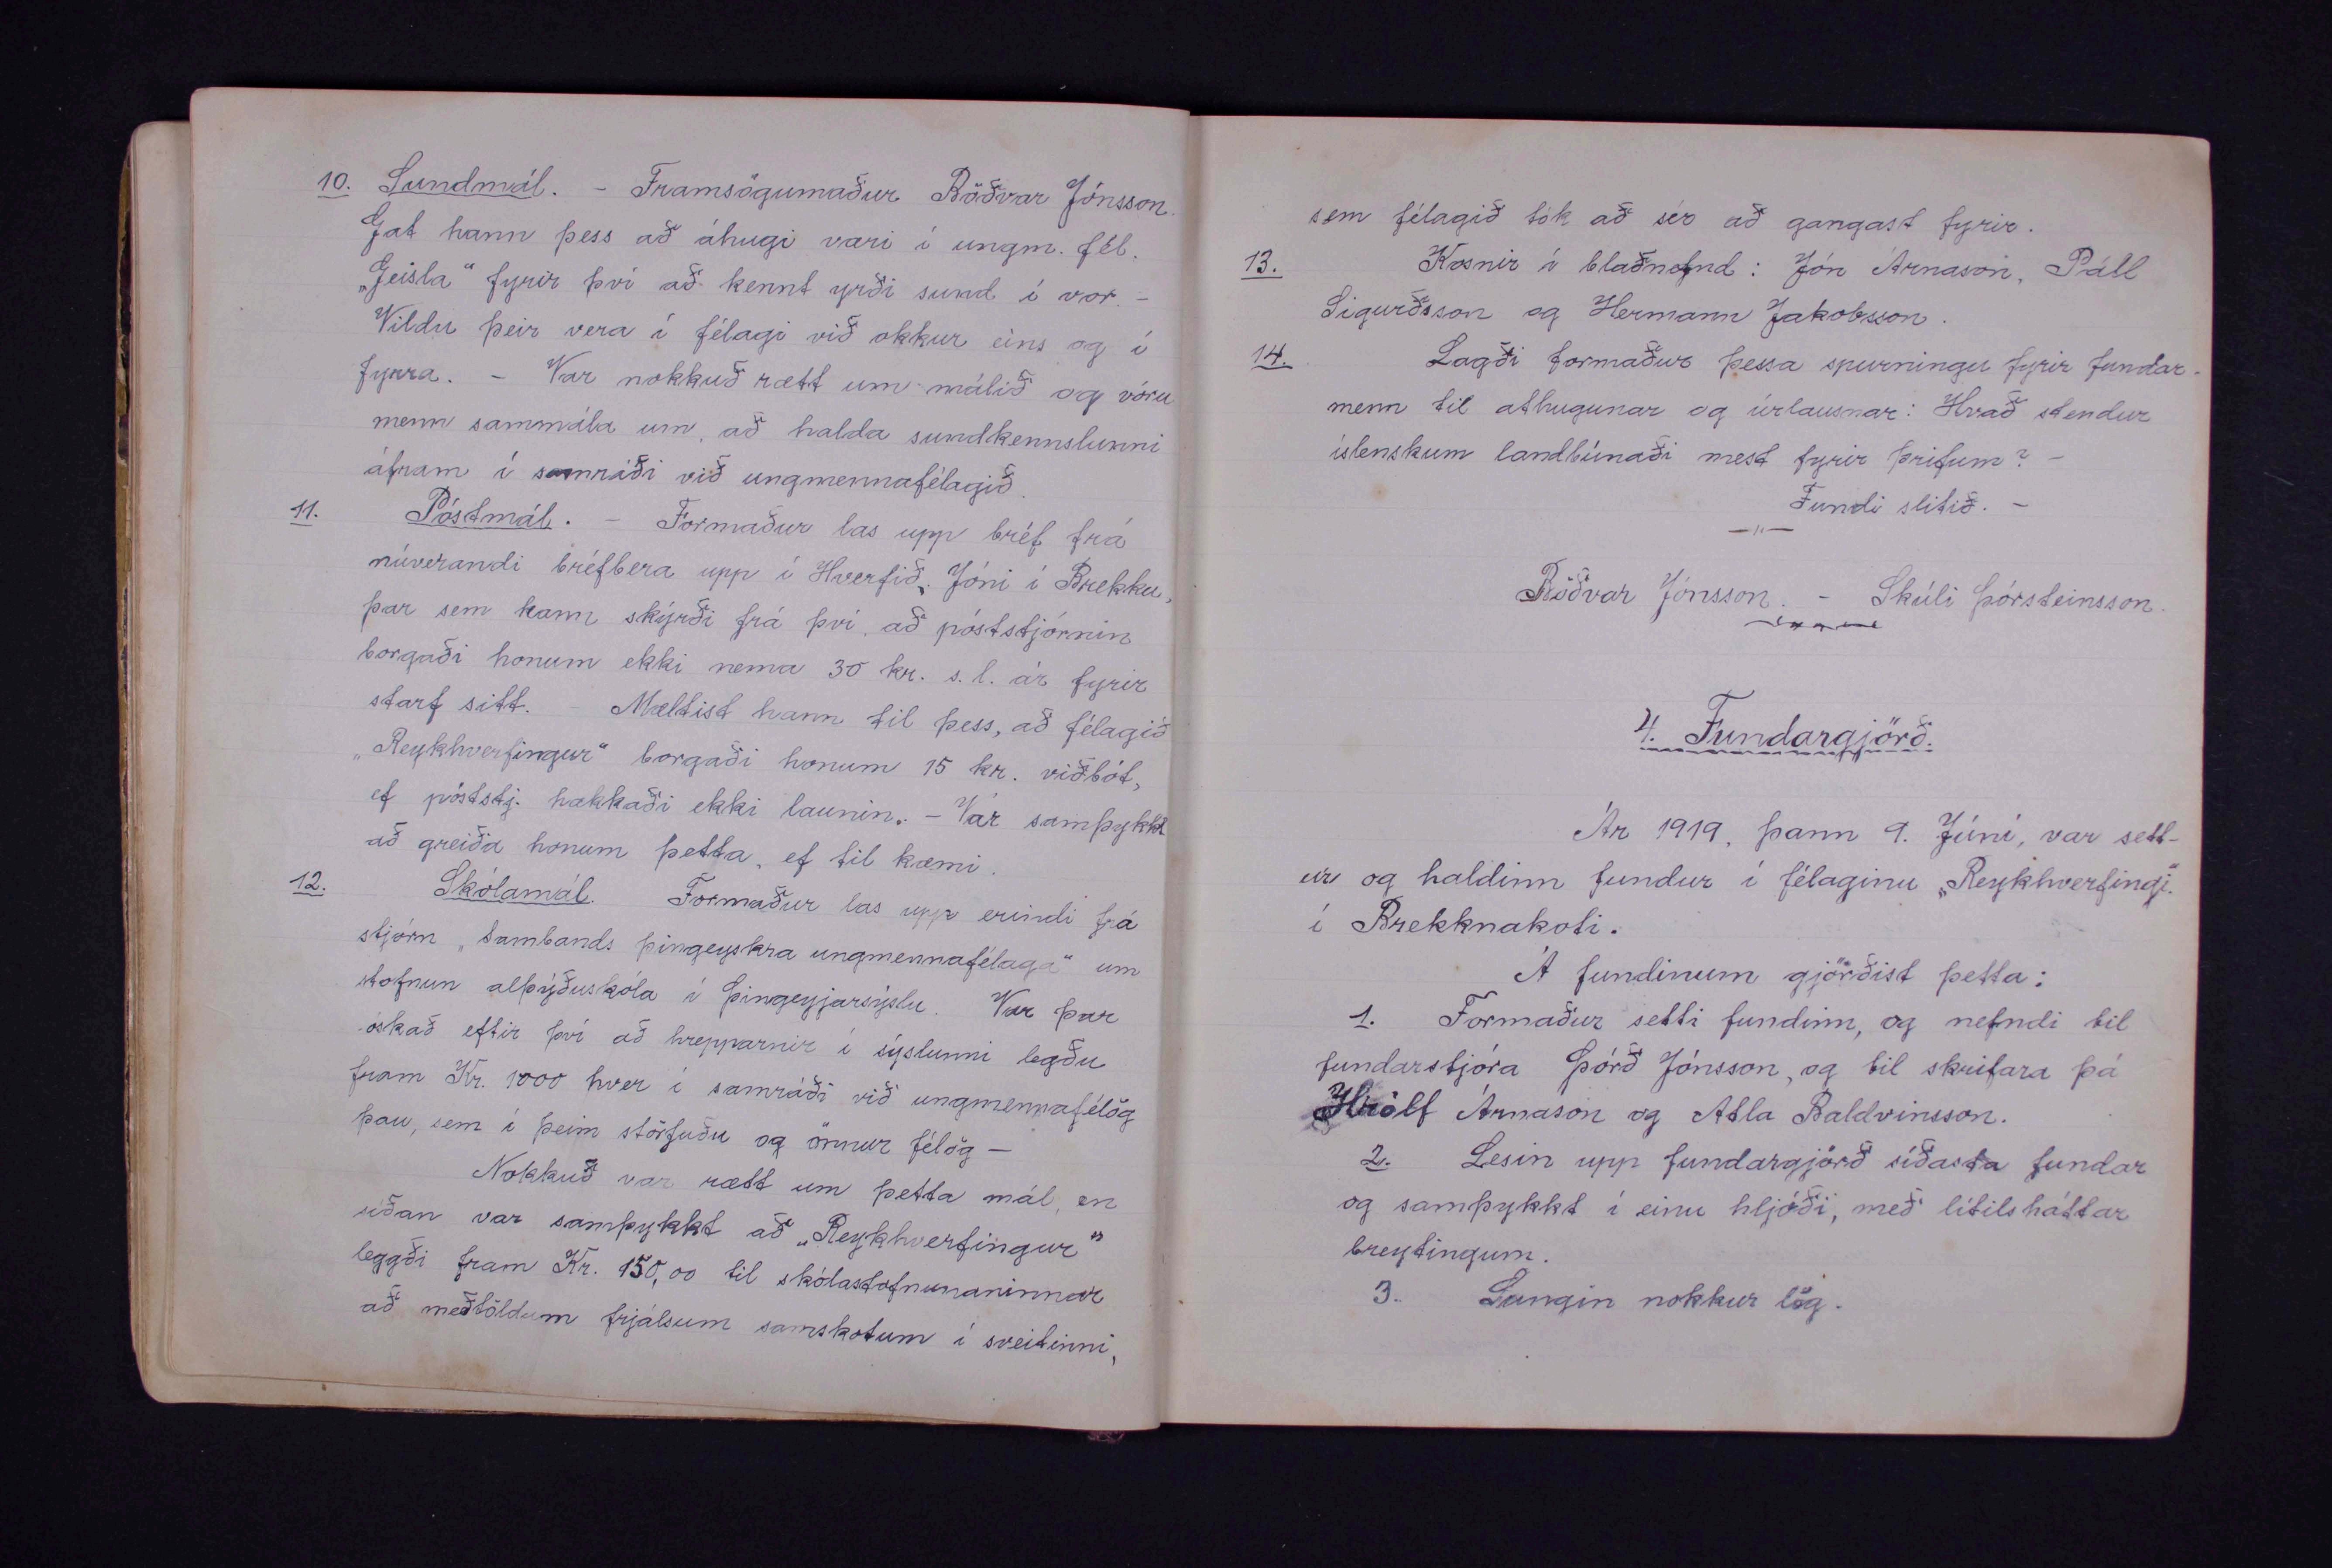 10. Sundmál. - Framsögumaður Böðvar Jónsson.
Gat hann þess að áhugi væri í ungm. fél.
„Geisla“ fyrir því að kennt yrði sund í vor. -
Vildu þeir vera í félagi við okkur eins og í
fyrra. - Var nokkuð rætt um málið og vóru
menn sammála um, að halda sundkennslunni
áfram í samráði við ungmennafélagið.
11. Póstmál. - Formaður las upp bréf frá
núverandi bréfbera upp í Hverfið, Jóni í Brekku,
þar sem hann skýrði frá því, að póststjórnin
borgaði honum ekki nema 30 kr. s.l. ár fyrir
starf sitt. - Mæltist hann til þess, að félagið
„Reykhverfingur“ borgaði honum 15 kr. viðbót,
ef póststj. hækkaði ekki launin. - Var samþykkt
að greiða honum þetta, ef til kæmi.
12. Skólamál. Formaður las upp erindi frá
stjórn „Sambands þingeyskra ungmennafélaga“ um
stofnun alþýðuskóla í Þingeyjarsýslu. Var þar
óskað eftir því að hrepparnir í sýslunni legðu
fram Kr. 1000 hver í samráði við ungmennafélög
þau, sem í þeim störfuðu og önnur félög -
Nokkuð var rætt um þetta mál, en
síðan var samþykkt að „Reykhverfingur“
leggði fram Kr. 150,00 til skólastofnunarinnar
að meðtöldum frjálsum samskotum í sveitinni,
sem félagið tók að sér að gangast fyrir.
13. Kosnir í blaðnefnd: Jón Árnason, Páll
Sigurðsson og Hermann Jakobsson.
14. Lagði formaður þessa spurningu fyrir fundar-
menn til athugunar og úrlausnar: Hvað stendur
íslenskum landbúnaði mest fyrir þrifum? -
Fundi slitið. -
Böðvar Jónsson. - Skúli Þórsteinsson.
4. Fundargjörð.
Ár 1919, þann 9. Júní, var sett-
ur og haldinn fundur í félaginu „Reykhverfingi“
í Brekknakoti.
Á fundinum gjörðist þetta:
1. Formaður setti fundinn, og nefndi til
fundarstjóra Þórð Jónsson, og til skrifara þá
Hrólf Árnason og Atla Baldvinsson.
2. Lesin upp fundargjörð síðasta fundar
og samþykkt í einu hljóði, með lítilsháttar
breytingum.
3. Sungin nokkur lög.